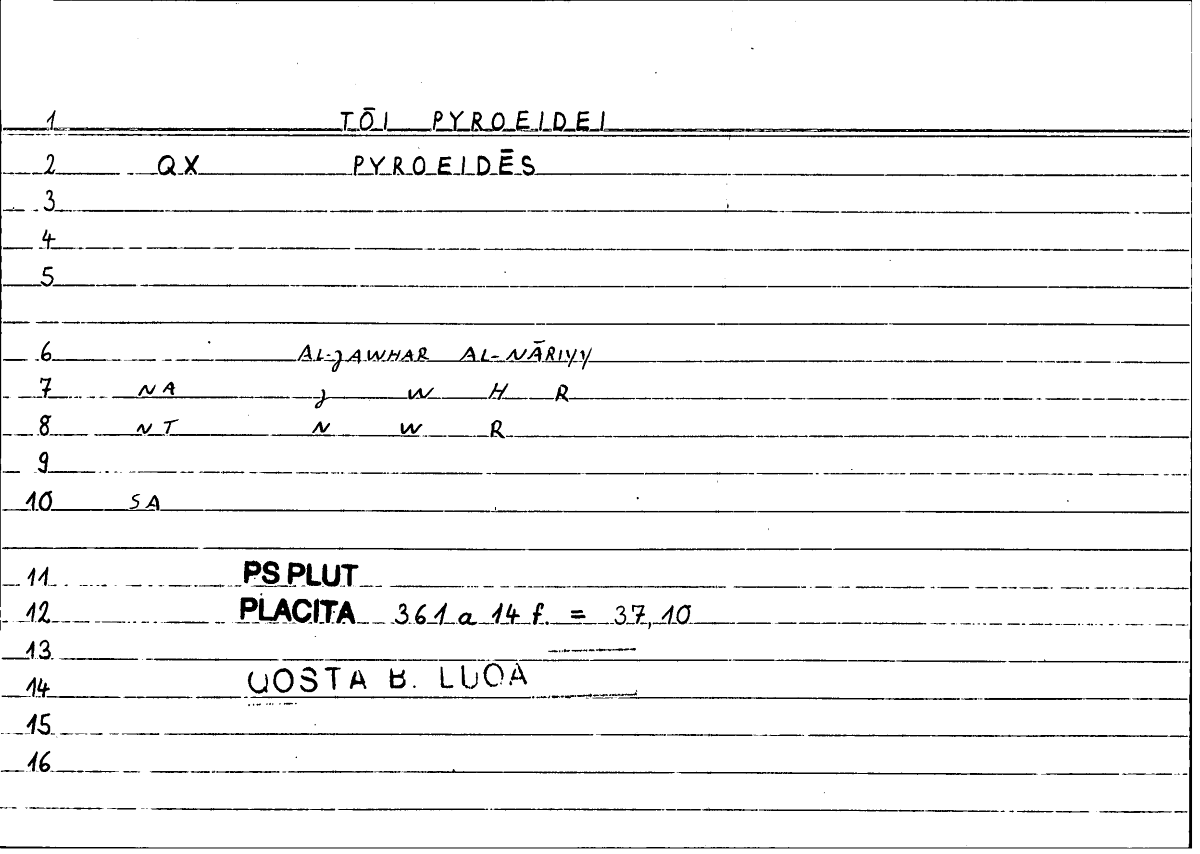 1 TŌI PYROEIDEI
2 QX PYROEIDĒS
3
4
5
6 AL-JAWHAR AL-NĀRIYY
7 NA J W H R
8 NT N W R
9
10 SA
11 PS PLUT
12 PLACITA 361 a 14 f. = 37,10
13
14 QOSTA B. LUQA
15
16